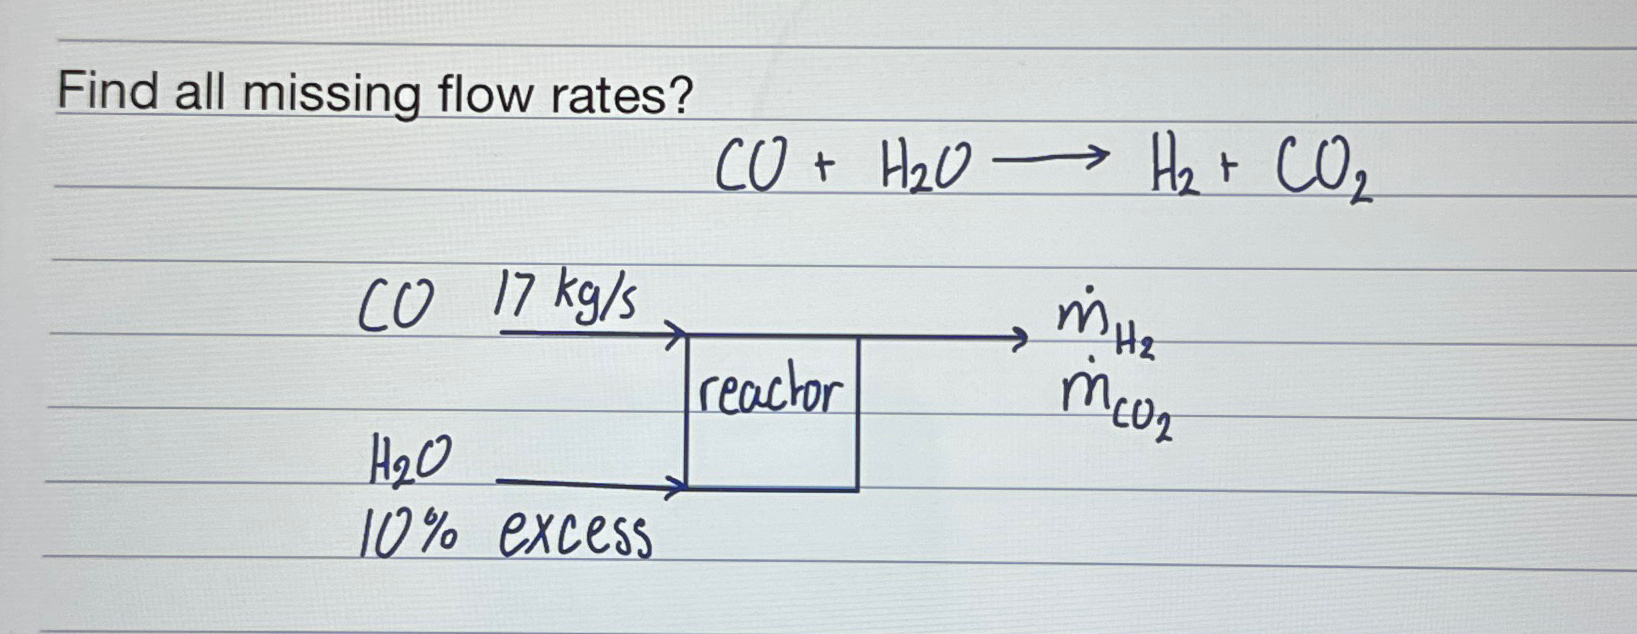 Find all missing flow rates?
CO + H₂O ⟶ H₂ + CO₂
CO 17 kg/s
ṁ_H₂
reactor
ṁ_CO₂
H₂O
10% excess